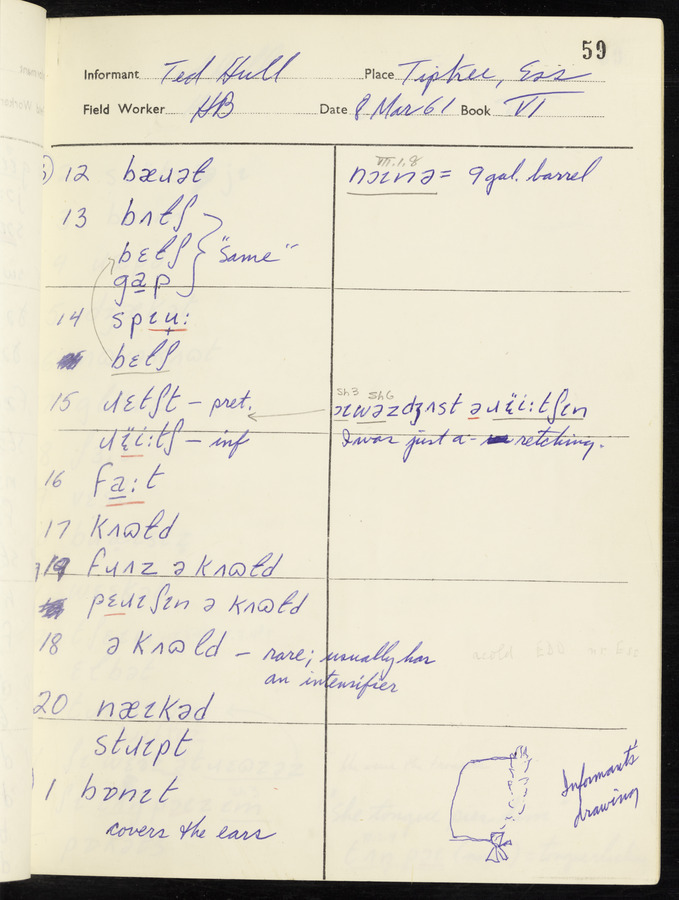 59
Informant Ted Hull Place Tiptree, Ess
Field Worker HB Date 8 Mar 61 Book VI
5) 12 bæɹət
VII.1.8
nɔɪnə = 9 gal. barrel
13 bʌtʃ
bɛtʃ } "same"
gap
14 spɪu:
bɛlʃ
15 ɹɛtʃt – pret.
sh3 sh6
ɔɪwəzdʒʌst əɹï:tʃɪn
ɹï:tʃ – inf
I was just a- retching.
16 fa:t
17 kʌɷłd
19 fɹʌz ə kʌɷłd
pɛɹɪʃɪn ə kʌɷłd
18 ə kʌɷld – rare; usually has
an intensifier
20 næɪkəd
stɹɪpt
1 bɒnɪt
covers the ears
Informant's
drawing